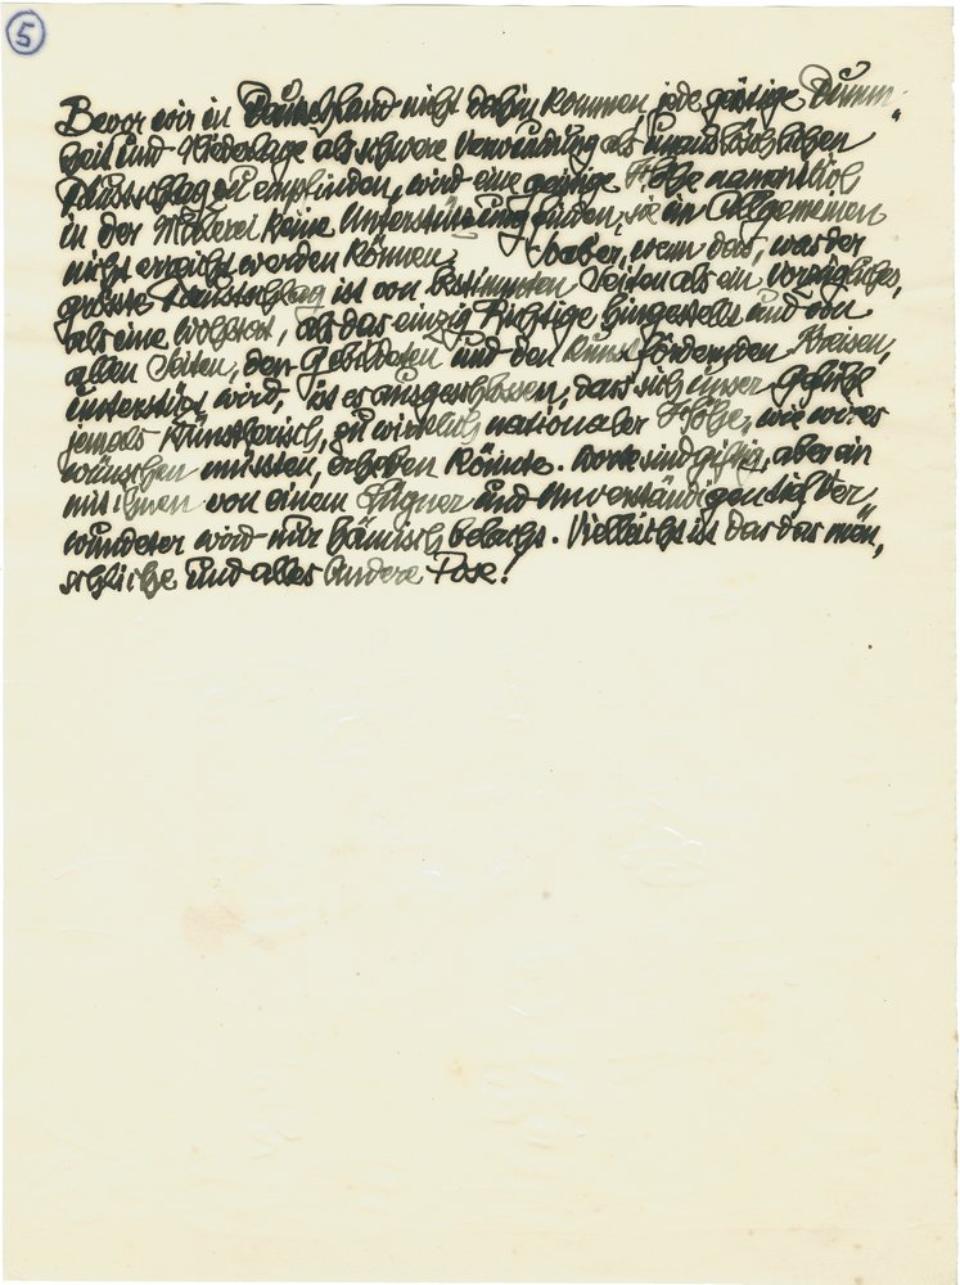 5
Bevor wir in Deutschland nicht dahin kommen, jede geistige Dumm„
heit und Niederlage als schwere Verwundung als unauslöschlichen
Faustschlag zu empfinden, wird eine geistige Höhe namentlich
in der Malerei keine Unterstützung finden, sie im Allgemeinen
nicht erreicht werden können. aber, wenn das, was der
grösste Faustschlag ist von bestimmten Seiten als ein vorzügliches,
als eine Wohltat, als das einzig Richtige hingestellt und von
allen Seiten, den Gebildeten und den Kunst fördernden Kreisen,
unterstüzt wird, ist es ausgeschlossen, dass sich unser Gefühl
jemals künstlerisch, zu wirklich nationaler Höhe, wie wir es
wünschen müssten, erheben könnte. Worte sind giftig, aber ein
mit ihnen von einem Lügner und Unverständigen tief Ver„
wundeter wird nur hämisch belacht. Vielleicht ist das das men„
schliche und alles Andere Pose!